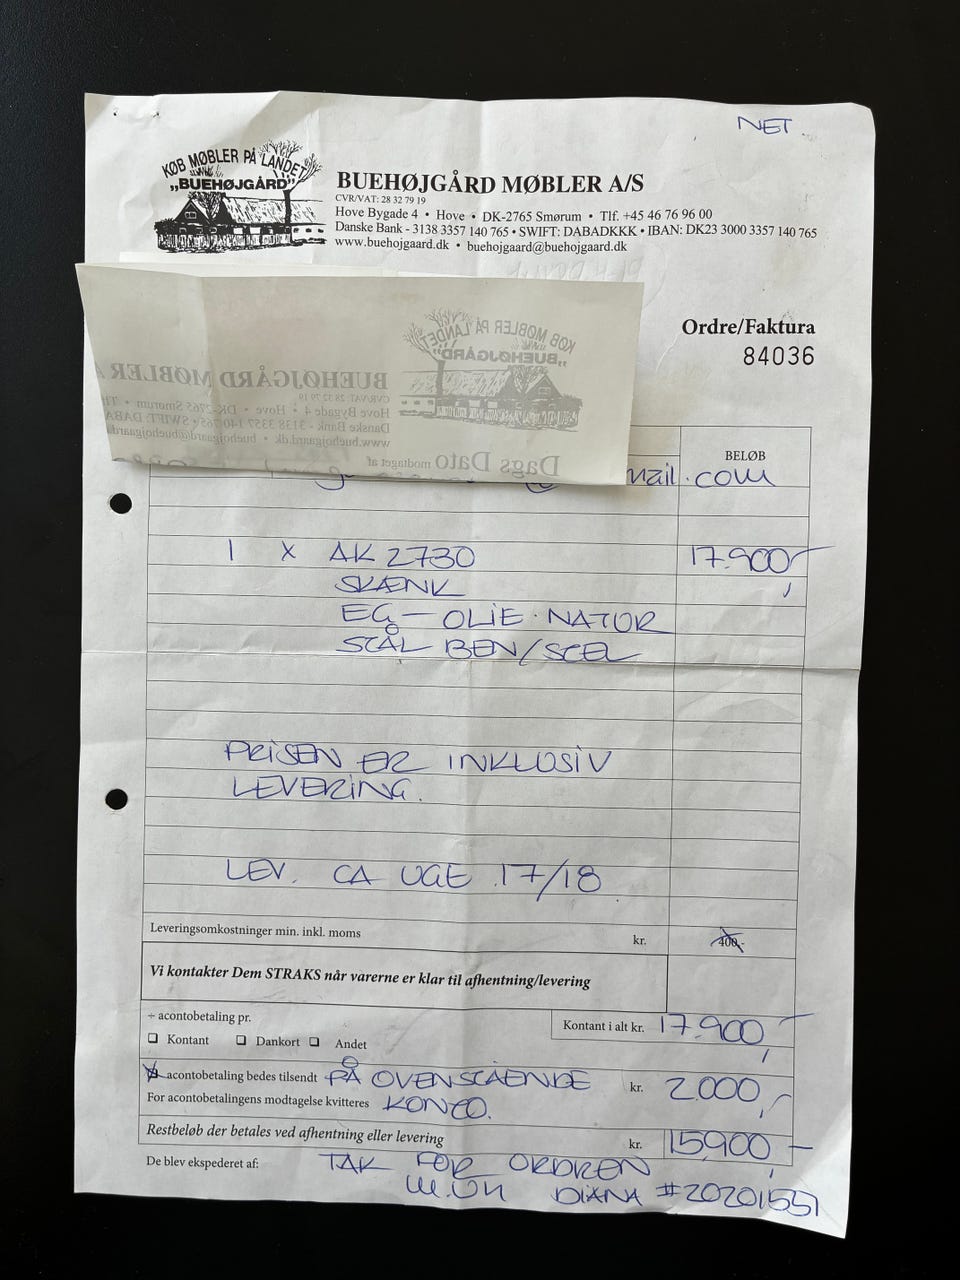 NET
KØB MØBLER PÅ LANDET
„BUEHØJGÅRD”
BUEHØJGÅRD MØBLER A/S
CVR/VAT: 28 32 79 19
Hove Bygade 4 • Hove • DK-2765 Smørum • Tlf. +45 46 76 96 00
Danske Bank - 3138 3357 140 765 • SWIFT: DABADKKK • IBAN: DK23 3000 3357 140 765
www.buehojgaard.dk • buehojgaard@buehojgaard.dk
Ordre/Faktura
84036
KØB MØBLER PÅ LANDET
„BUEHØJGÅRD”
BUEHØJGÅRD MØBLER A
CVR/VAT: 28 32 79 19
Hove Bygade 4 • Hove • DK-2765 Smørum • Tl
Danske Bank - 3138 3357 140 765 • SWIFT: DABA
www.buehojgaard.dk • buehojgaard@buehojgaard
Dags Dato modtaget af
BELØB
mail.com
1 x AK 2730 17.900,-
SKÆNK
EG - OLIE NATUR
STÅL BEN/STEL
PRISEN ER INKLUSIV
LEVERING.
LEV. CA UGE 17/18
Leveringsomkostninger min. inkl. moms kr. 400,-
Vi kontakter Dem STRAKS når varerne er klar til afhentning/levering
÷ acontobetaling pr. Kontant i alt kr. 17.900,-
Kontant Dankort Andet
acontobetaling bedes tilsendt PÅ OVENSTÅENDE kr. 2.000,-
For acontobetalingens modtagelse kvitteres KONTO.
Restbeløb der betales ved afhentning eller levering kr. 15.900,-
De blev ekspederet af: TAK FOR ORDREN
M.VH DIANA #20201551